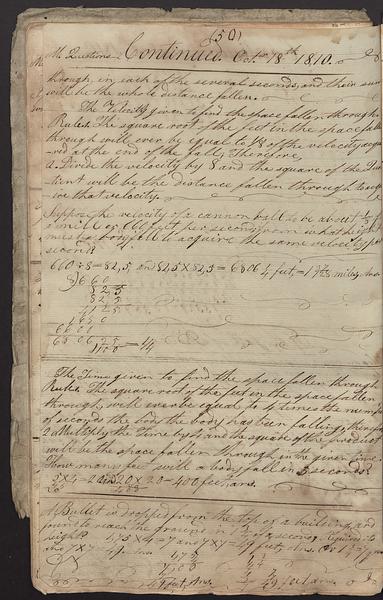 (50)
M Questions Continued. Octr 18th 1810.
through, in each of the several seconds, and their sum
will be the whole distance fallen.
The Velocity given to find the space fallen through
Rule 1. The square root of the feet in the space fallen
through will ever be equal to 1/8 of the velocity acqui
-red at the end of the fall; Therefore,
2. Divide the velocity by 8 and the square of the Quo
tient will be the distance fallen through to acqu
ire that velocity.
Suppose the velocity of a cannon ball to be about 1/8 of
a mile or 660 feet per second, from what height
must a body fall to acquire the same velocity per
second
660 ÷ 8 = 82,5 and 82,5 × 82,5 = 6806 1/4 feet, = 1 miles Ans
8)660
82,5
82,5
4125
1650
6600
6806,25
= 1/4
The Time given to find the space fallen through
Rule 1. The square root of the feet in the space fallen
through, will ever be equal to 4 times the number
of seconds the body has been falling, therefore
2. Multiply the Time by 4 and the square of the product
will be the space fallen through in the given time.
How many feet will a body fall in 5 seconds
5 × 4 = 20 and 20 × 20 = 400 feet Ans.
A Bullet is dropped from the top of a building, and
found to reach the ground in 1 3/4 of a second, required its
height? 1,75 × 4 = 7 and 7 × 7 = 49 feet, Ans. Or
and 7 × 7 = 49 Ans.
1,75
7,00
7
49 feet, Ans.
49 feet Ans.